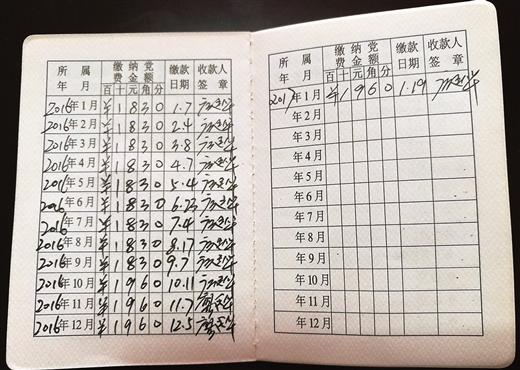 所属 缴纳党 缴款 收款人
年月 费金额 日期 签章
百 十 元 角 分
2016年1月 ¥ 1 8 3 0 1.7
2016年2月 ¥ 1 8 3 0 2.4
2016年3月 ¥ 1 8 3 0 3.8
2016年4月 ¥ 1 8 3 0 4.7
2016年5月 ¥ 1 8 3 0 5.4
2016年6月 ¥ 1 8 3 0 6.23
2016年7月 ¥ 1 8 3 0 7.4
2016年8月 ¥ 1 8 3 0 8.17
2016年9月 ¥ 1 8 3 0 9.7
2016年10月 ¥ 1 9 6 0 10.11
2016年11月 ¥ 1 9 6 0 11.7
2016年12月 ¥ 1 9 6 0 12.5
所属 缴纳党 缴款 收款人
年月 费金额 日期 签章
百 十 元 角 分
2017年1月 ¥ 1 9 6 0 1.19
年2月
年3月
年4月
年5月
年6月
年7月
年8月
年9月
年10月
年11月
年12月